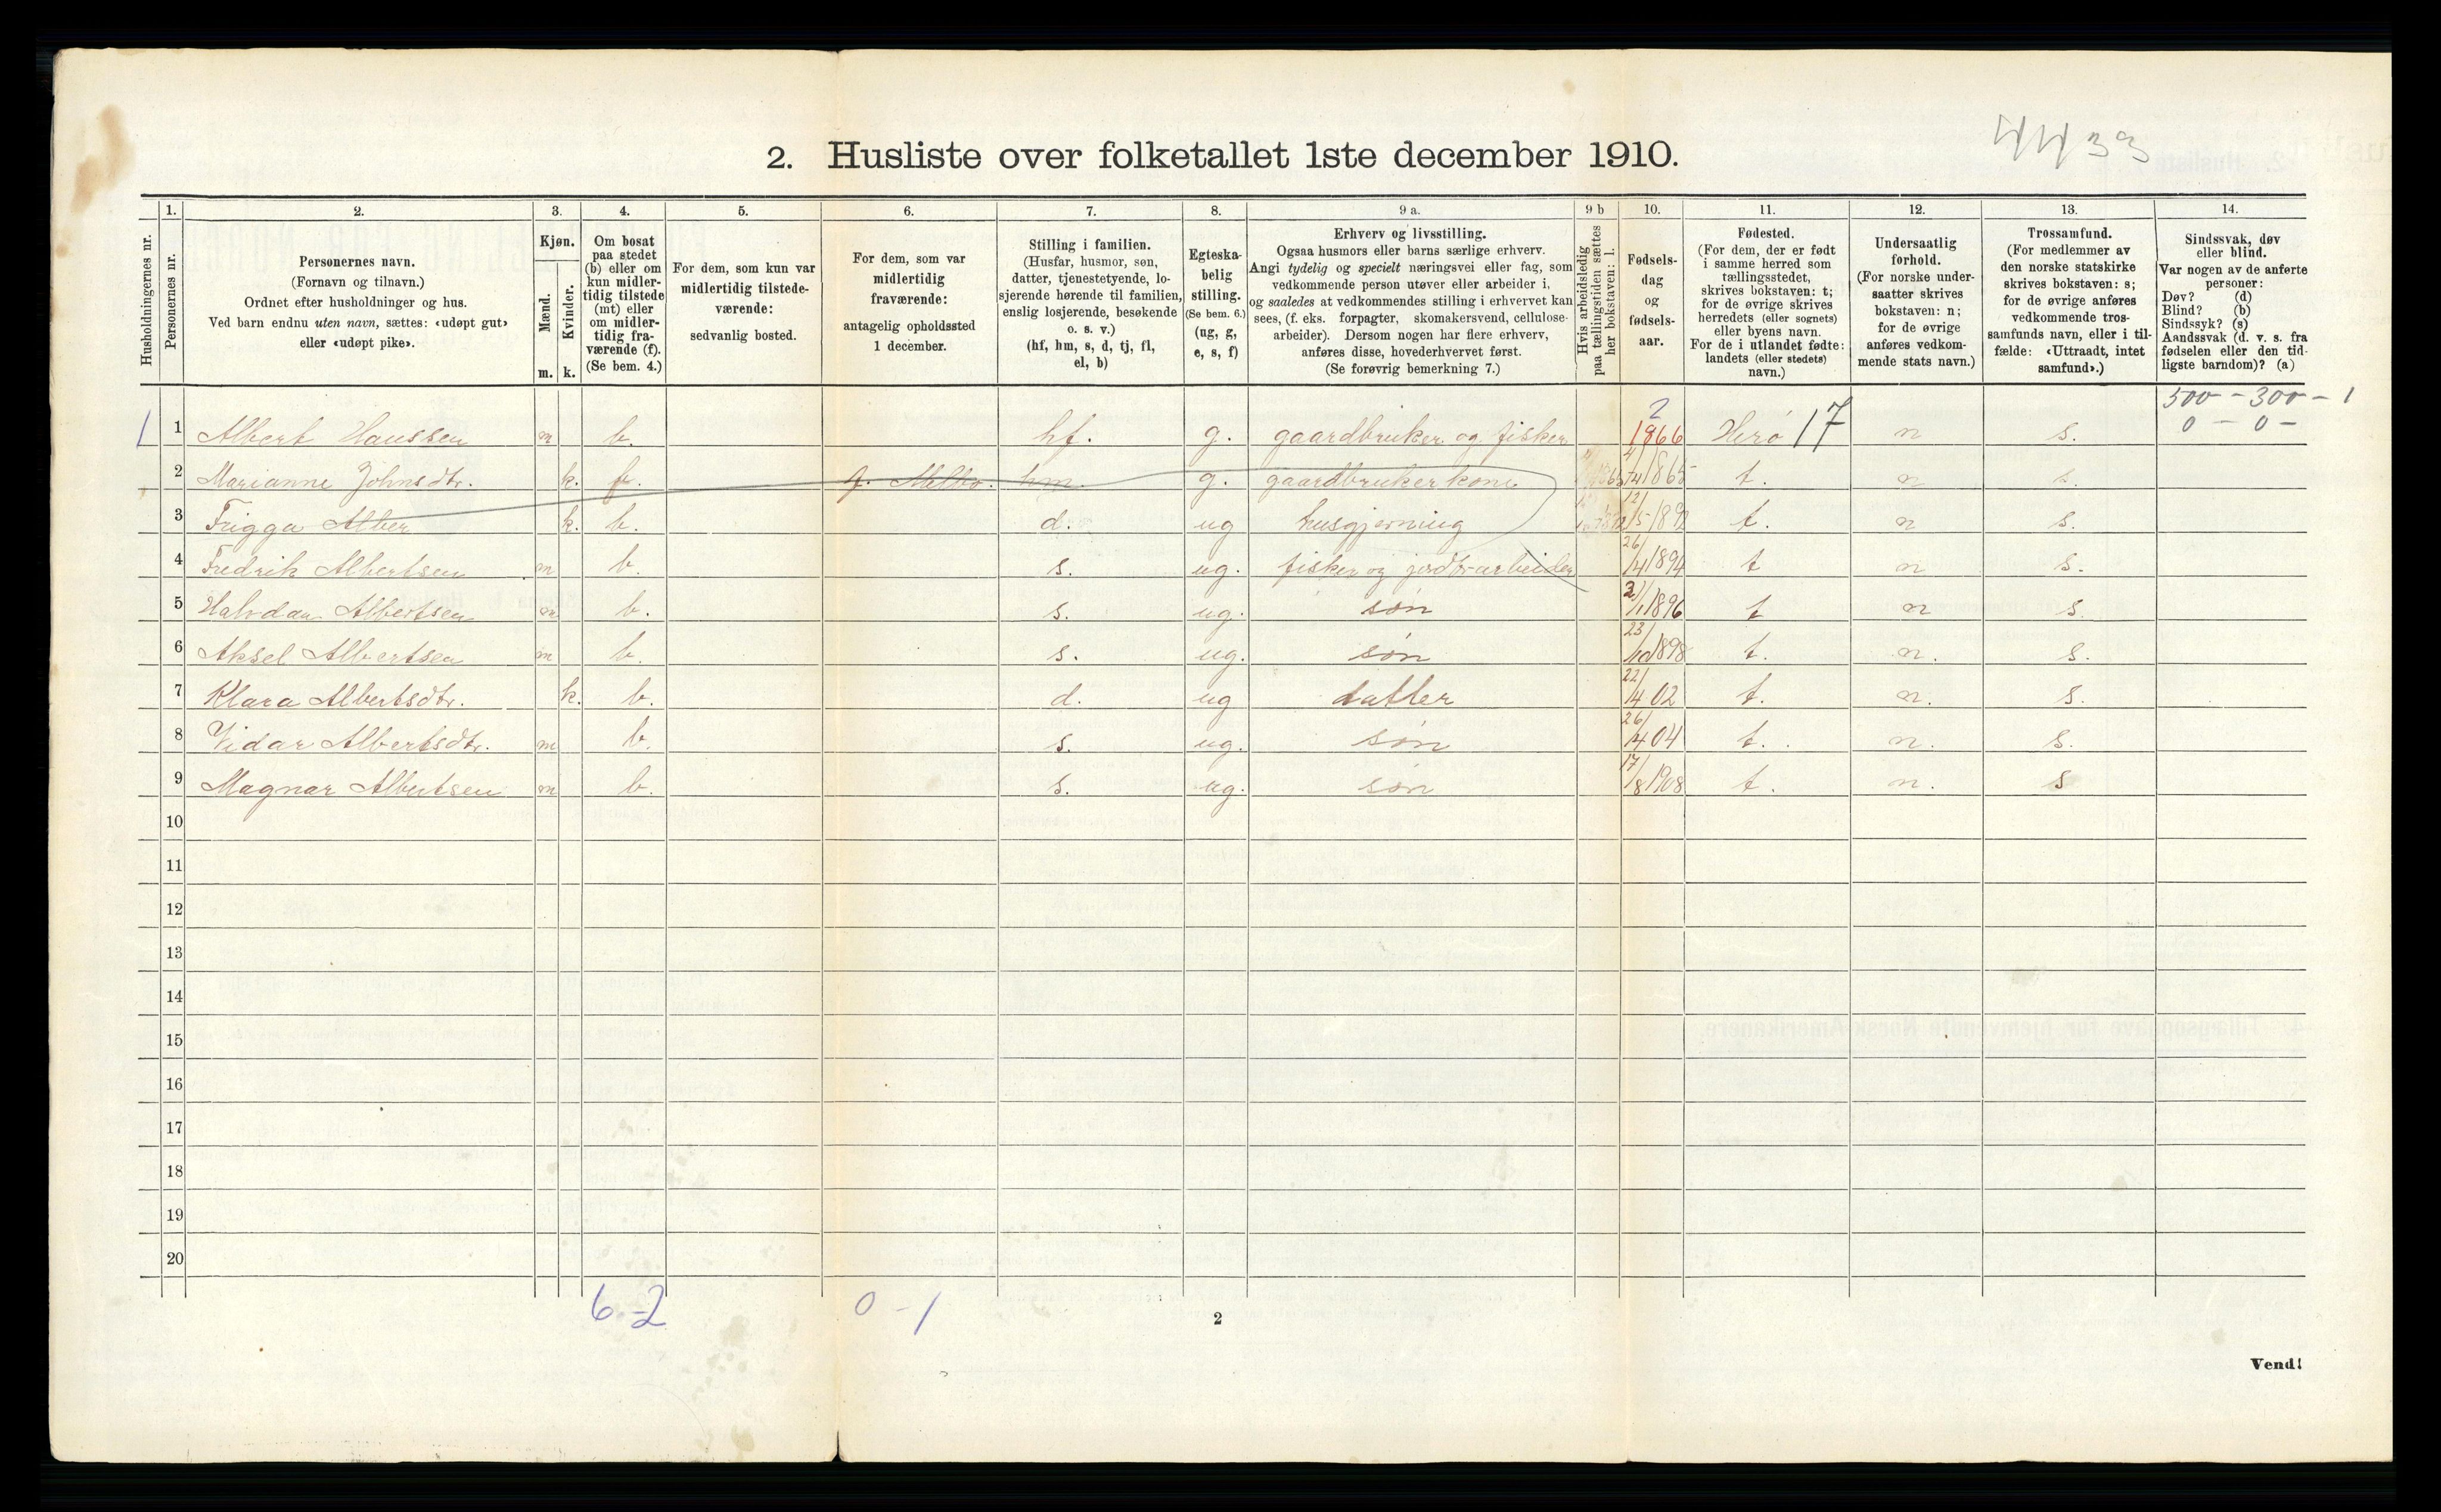 4433
2. Husliste over folketallet 1ste december 1910.
1. 2. 3. 4. 5. 6. 7. 8. 9 a. 9 b 10. 11. 12. 13. 14.
Husholdningernes nr.
Personernes nr.
Personernes navn.
(Fornavn og tilnavn.)
Ordnet efter husholdninger og hus.
Ved barn endnu uten navn, sættes: «udøpt gut»
eller «udøpt pike».
Kjøn.
Mænd.
Kvinder.
m. k.
Om bosat
paa stedet
(b) eller om
kun midler-
tidig tilstede
(mt) eller
om midler-
tidig fra-
værende (f).
(Se bem. 4.)
For dem, som kun var
midlertidig tilstede-
værende:
sedvanlig bosted.
For dem, som var
midlertidig
fraværende:
antagelig opholdssted
1 december.
Stilling i familien.
(Husfar, husmor, søn,
datter, tjenestetyende, lo-
sjerende hørende til familien,
enslig losjerende, besøkende
o. s. v.)
(hf, hm, s, d, tj, fl,
el, b)
Egteska-
belig
stilling.
(Se bem. 6.)
(ug, g,
e, s, f)
Erhverv og livsstilling.
Ogsaa husmors eller barns særlige erhverv.
Angi tydelig og specielt næringsvei eller fag, som
vedkommende person utøver eller arbeider i,
og saaledes at vedkommendes stilling i erhvervet kan
sees, (f. eks. forpagter, skomakersvend, cellulose-
arbeider). Dersom nogen har flere erhverv,
anføres disse, hovederhvervet først.
(Se forøvrig bemerkning 7.)
Hvis arbeidsledig
paa tællingstiden sættes
her bokstaven: l.
Fødsels-
dag
og
fødsels-
aar.
Fødested.
(For dem, der er født
i samme herred som
tællingsstedet,
skrives bokstaven: t;
for de øvrige skrives
herredets (eller sognets)
eller byens navn.
For de i utlandet fødte:
landets (eller stedets)
navn.)
Undersaatlig
forhold.
(For norske under-
saatter skrives
bokstaven: n;
for de øvrige
anføres vedkom-
mende stats navn.)
Trossamfund.
(For medlemmer av
den norske statskirke
skrives bokstaven: s;
for de øvrige anføres
vedkommende tros-
samfunds navn, eller i til-
fælde: «Uttraadt, intet
samfund».)
Sindssvak, døv
eller blind.
Var nogen av de anførte
personer:
Døv? (d)
Blind? (b)
Sindssyk? (s)
Aandssvak (d. v. s. fra
fødselen eller den tid-
ligste barndom)? (a)
500 - 300 - 1
0 - 0 -
1 1 Albert Hanssen m b. hf. g. gaardbruker og fisker 2/4 1866 Herø 17 n s.
2 Marianne Johnsdtr. k. f. f. Melbo. hm. g. gaardbruker kone 1865 t. n s.
3 Frigga Alber k. b. d. ug husgjerning 12/5 1892 t. n s.
4 Fredrik Albertsen m b. s. ug. fisker og jordbrarbeider 26/4 1894 t n s.
5 Halvdan Albertsen m b. s. ug. søn 1896 t n s.
6 Aksel Albertsen m b. s. ug. søn 23/10 1898 t. n. s.
7 Klara Albertsdtr. k. b. d. ug datter 22/4 02 t. n. s.
8 Vidar Albertsdtr. m b. s. ug. søn 26/4 04 t. n. s.
9 Magnar Albertsen m b. s. ug. søn 17/8 1908 t. n. s
10
11
12
13
14
15
16
17
18
19
20
6-2 0-1
2
Vend!